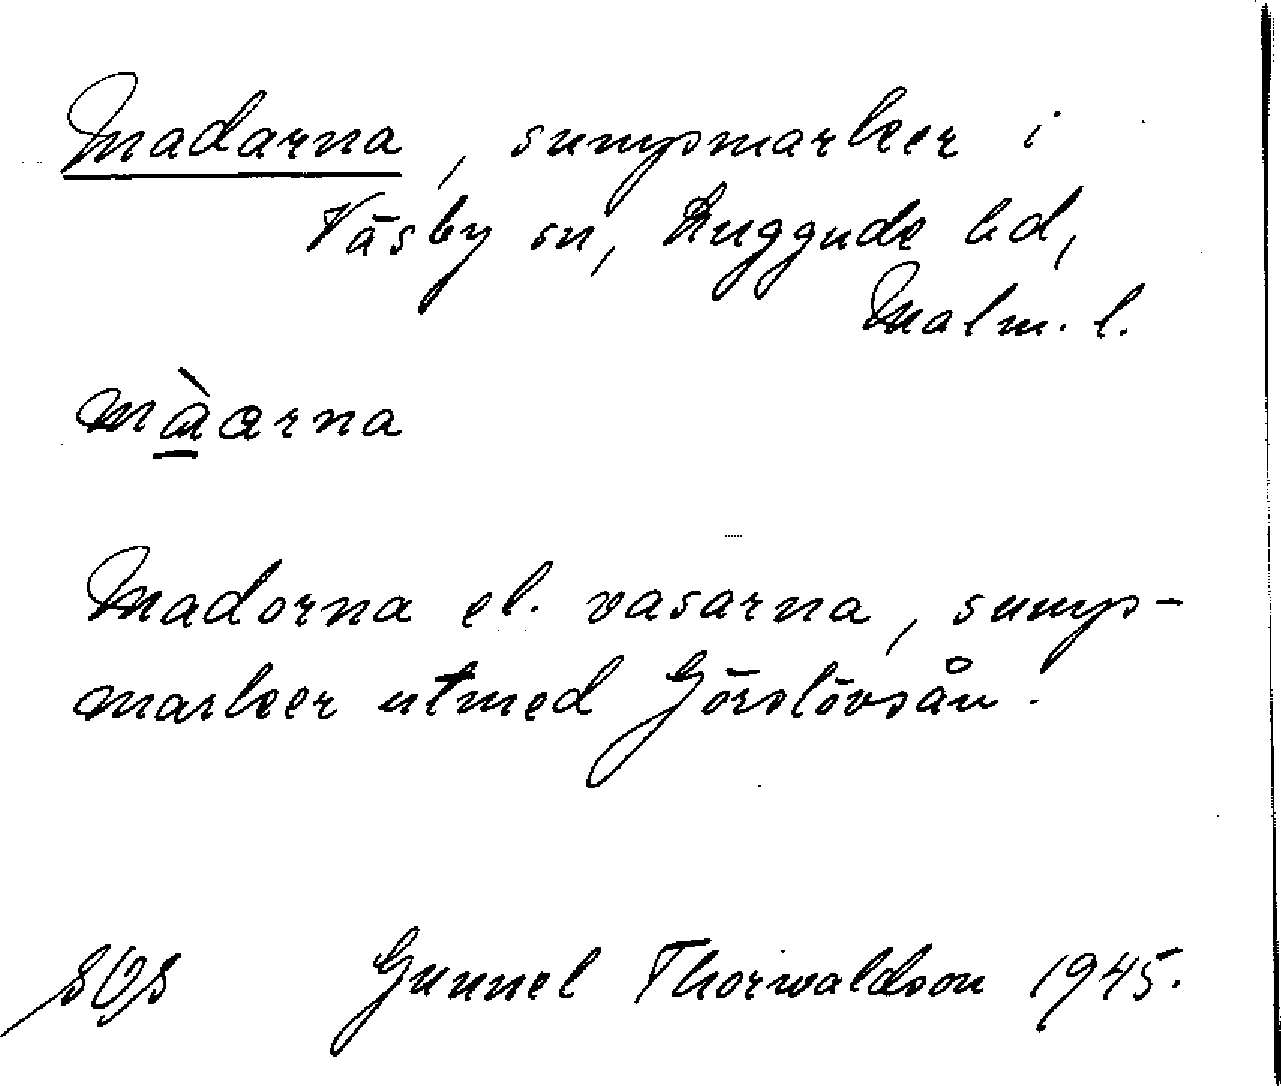 Madarna, sumpmarker i
Väsby sn, Luggude hd,
Malm. l.
màarna
Madorna el. vasarna, sump-
marker utmed Görslövsån.
SOS Gunnel Thorwaldson 1945.